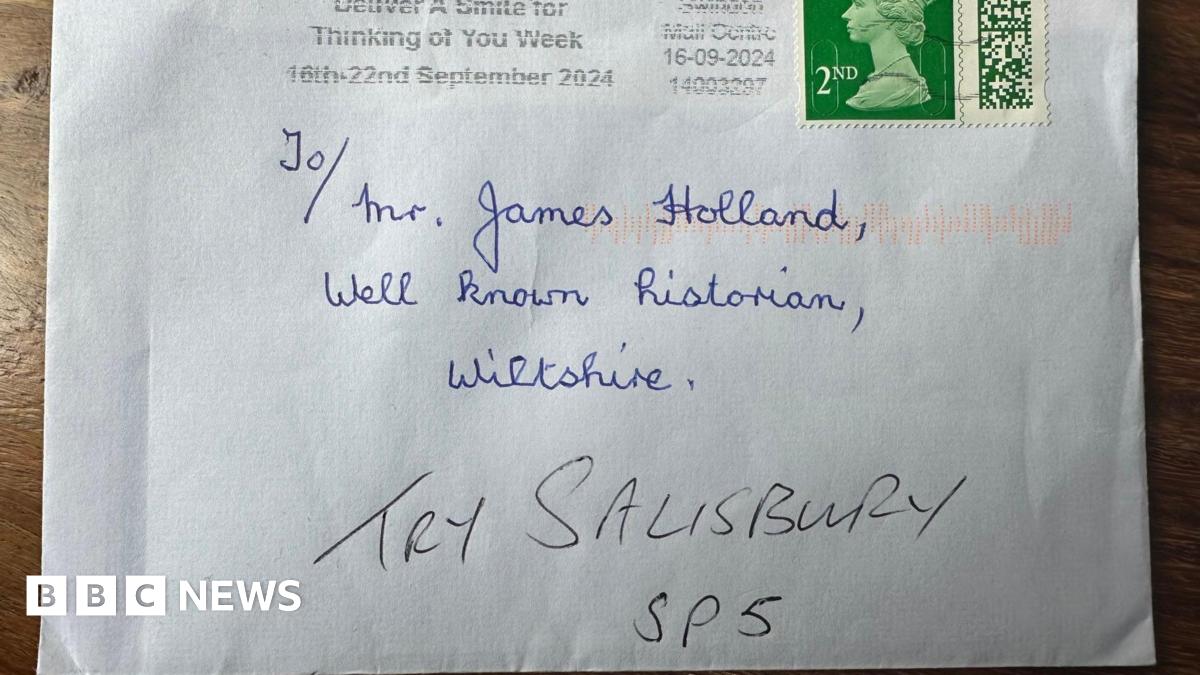 Deliver A Smile for
Thinking of You Week
16th-22nd September 2024
Swindon
Mail Centre
16-09-2024
2ND
To/
Mr. James Holland,
Well known historian,
Wiltshire.
TRY SALISBURY
SP5
BBC NEWS